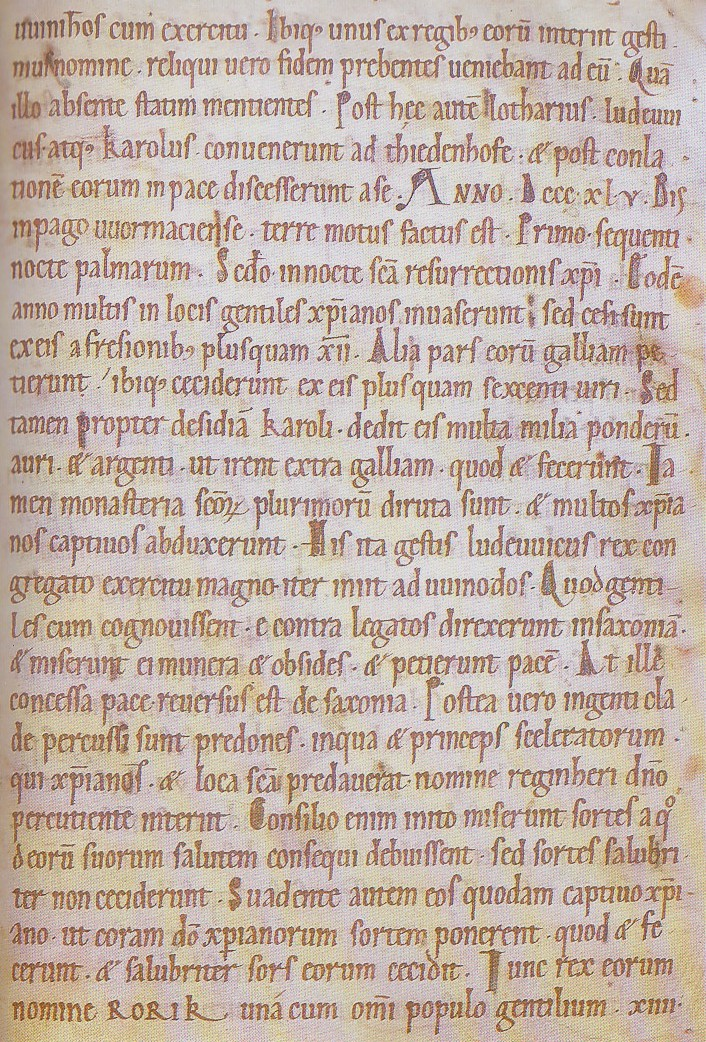 uuinidos cum exercitu · Ibiq; unus ex regib; eorū interiit gesti
musnomine · reliqui uero fidem prebentes ueniebant ad eū · Quā
illo absente statim mentientes · Post hęc autē lotharius · ludeuui
cus · atq; karolus · conuenerunt ad thiedenhofe · & post conla
tionē eorum in pace discesserunt a se · ANNO · Dcccxlv · Bis
in pago uuormaciense · terre motus factus est · Primo · sequenti
nocte palmarum · Scđo · in nocte scā resurrectionis xp̄i · Eodē
anno multis in locis gentiles xp̄ianos inuaserunt · sed cesi sunt
ex eis a fresionib; plusquam xii · Alia pars eorū galliam pe
tierunt · ibiq; ceciderunt ex eis plusquam sexcenti uiri · Sed
tamen propter desidiā karoli · dedit eis multa milia ponderū ·
auri · & argenti · ut irent extra galliam · quod & fecerunt · Ta
men monasteria scōꝝ plurimorū diruta sunt · & multos xp̄ia
nos captiuos abduxerunt · His ita gestis ludeuuicus rex con
gregato exercitu magno · iter iniit ad uuinodos · Quod genti
les cum cognouissent · e contra legatos direxerunt in saxoniā ·
& miserunt ei munera & obsides · & petierunt pacē · At ille
concessa pace · reuersus est de saxonia · Postea uero ingenti cla
de percussi sunt predones · in qua & princeps sceleratorum ·
qui xp̄ianos · & loca scā predauerat · nomine reginheri dn̄o
percutiente interiit · Consilio enim inito miserunt sortes a qͦ
deorū suorum salutem consequi debuissent · sed sortes salubri
ter non ceciderunt · Suadente autem eos quodam captiuo xp̄i
ano · ut coram dō xp̄ianorum sortem ponerent · quod & fe
cerunt · & salubriter sors eorum cecidit · Tunc rex eorum
nomine RORIK unā cum om̄i populo gentilium · xiiii ·